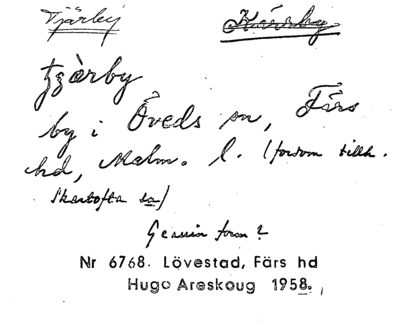 Tjärby Kärrby
tzärby
by i Öveds sn, Färs
hd, Malm. l. (förom tillh.
Skartofta sn)
Genuin form?
Nr 6768. Lövestad, Färs hd
Hugo Areskoug 1958.